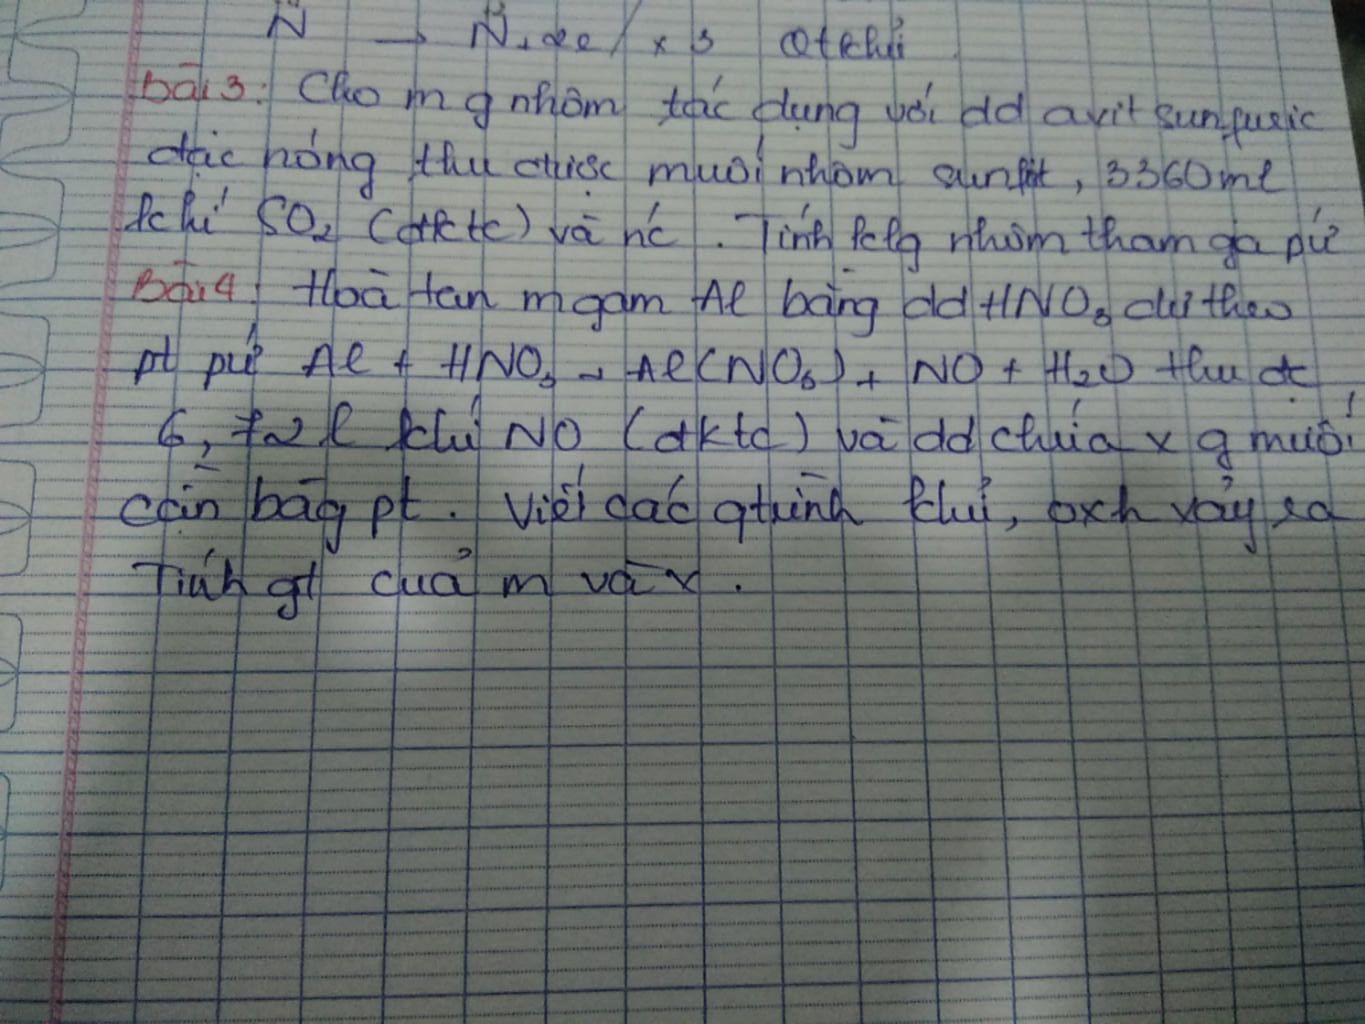 N → N + 2e / x 3 Qt khử
Bài 3: Cho m g nhôm tác dụng với dd axit sunfuric
đặc nóng thu được muối nhôm sunfat, 3360ml
khí SO2 (đktc) và nc. Tính klg nhôm tham gia pứ
Bài 4: Hoà tan m gam Al bằng dd HNO3 dư theo
pt pứ Al + HNO3 → Al(NO3) + NO + H2O thu đc
6,72 l khí NO (đktc) và dd chứa x g muối
cân bằg pt. Viết các qtrình khử, oxh xảy ra
Tính gt của m và x.